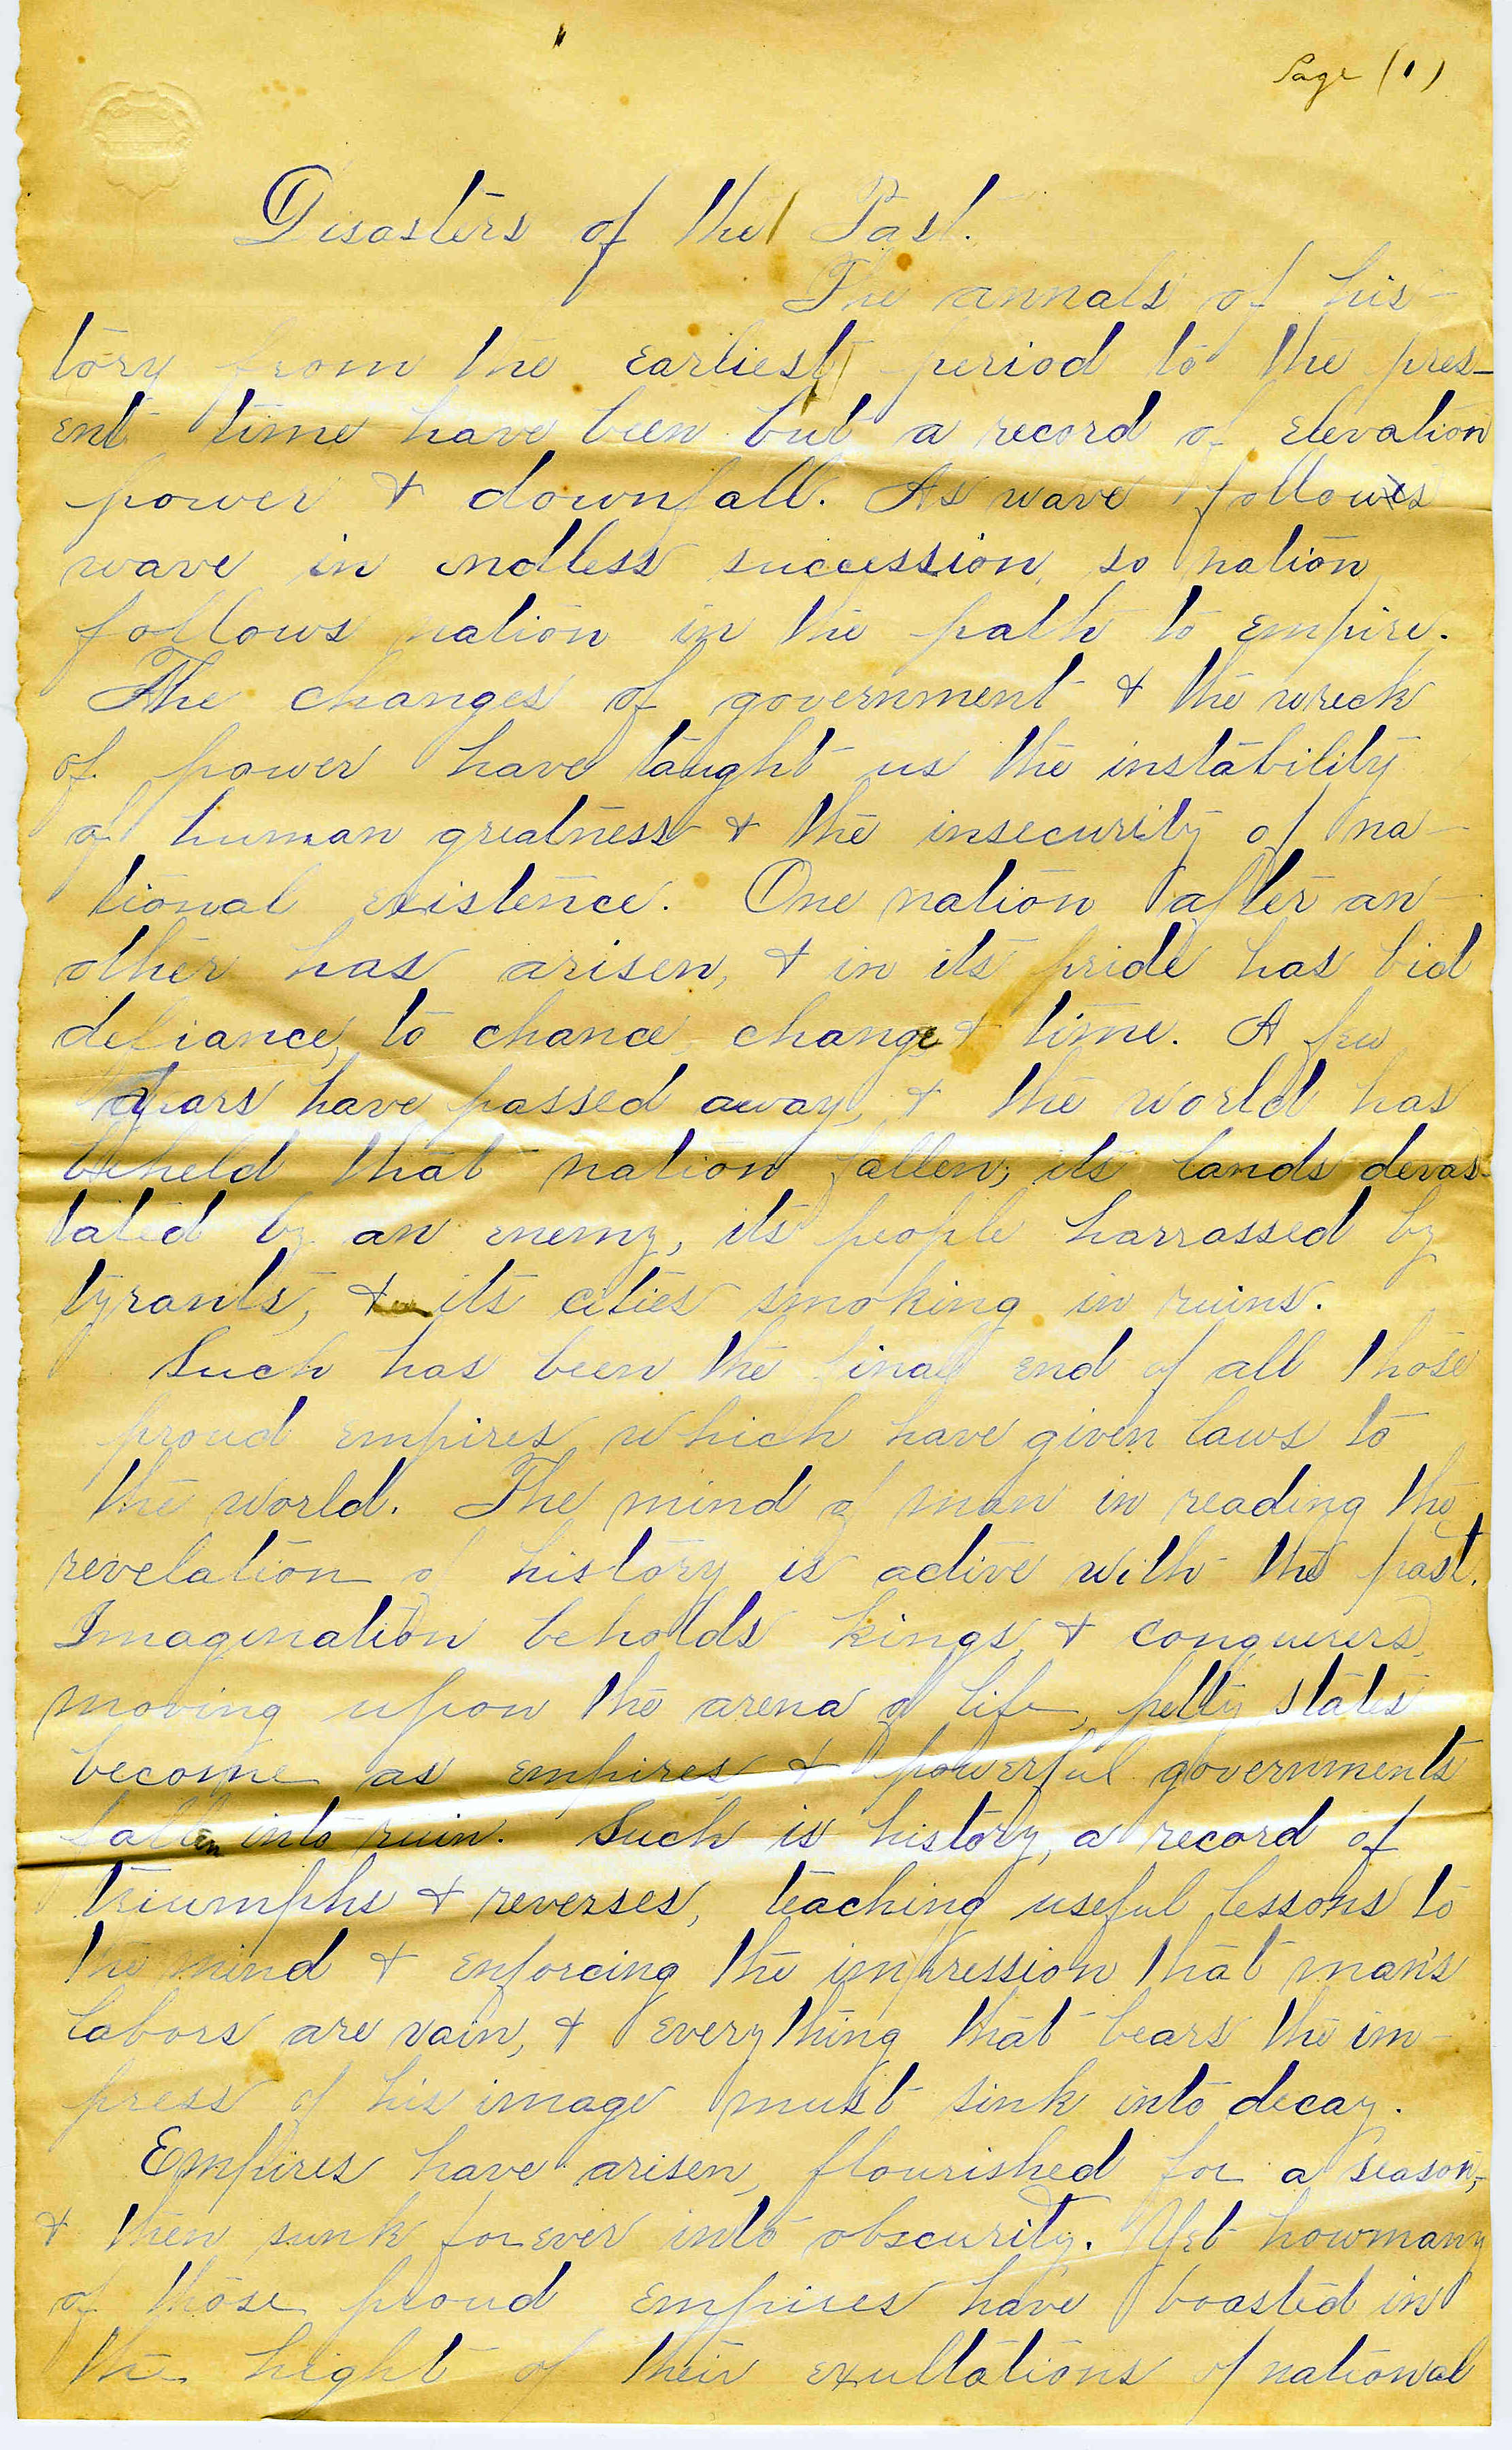 Page (1)
Disasters of the Past.
The annals of his-
tory from the earliest period to the pres-
ent time have been but a record of elevation
power & downfall. As wave follows
wave in endless succession, so nation
follows nation in the path to empire.
The changes of government & the wreck
of power have taught us the instability
of human greatness & the insecurity of na-
tional existence. One nation after an-
other has arisen, & in its pride has bid
defiance, to chance, change & time. A few
years have passed away, & the world has
beheld that nation fallen; its lands devas-
tated by an enemy, its people harrassed by
tyrants, & its cities smoking in ruins.
Such has been the final end of all those
proud empires which have given laws to
the world. The mind of man in reading the
revelation of history is active with the past.
Imagination beholds kings, & conquerers,
moving upon the arena of life, petty states
become as empires & powerful governments
fallen into ruin. Such is history, a record of
triumphs & reverses, teaching useful lessons to
the mind & enforcing the impression that man's
labors are vain, & everything that bears the im-
press of his image must sink into decay.
Empires have arisen, flourished for a season,
& then sunk forever into obscurity. Yet how many
of those proud empires have boasted in
the hight of their exultations of national